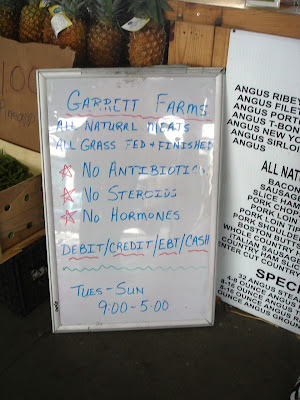 GARRETT FARMS
ALL NATURAL MEATS
ALL GRASS FED + FINISHED
☆ NO ANTIBIOTIC
☆ NO STEROIDS
☆ NO HORMONES
DEBIT/CREDIT/EBT/CASH
TUES-SUN
9:00-5:00
100
ANGUS RIBEY
ANGUS FILE
ANGUS PORT
ANGUS T-BO
ANGUS NEW YO
ANGUS SIRLO
ANGUS
ALL NAT
BACO
SAUSAGE
SLICE HAM
PORK CHO
PORK LOIN
PORK TIP
PORK SHOULD
BOSTON BUTT
COUNTRY
ITALIAN SAUSAGE
HAM SLIC
CENTER CUT COUNT
SPEC
32 ANGUS STEA
4-8 OUNCE ANGUS
8-16 OUNCE ANGUS
OUNCE ANGUS GROUN